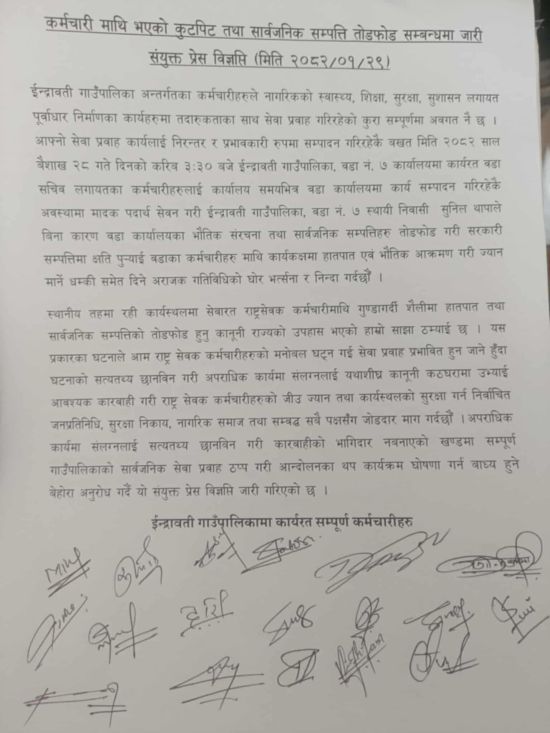 कर्मचारी माथि भएको कुटपिट तथा सार्वजनिक सम्पत्ति तोडफोड सम्बन्धमा जारी
संयुक्त प्रेस विज्ञप्ति (मिति २०८२/०१/२९)
ईन्द्रावती गाउँपालिका अन्तर्गतका कर्मचारीहरुले नागरिकको स्वास्थ्य, शिक्षा, सुरक्षा, सुशासन लगायत
पूर्वाधार निर्माणका कार्यहरुमा तदारुकताका साथ सेवा प्रवाह गरिरहेको कुरा सम्पूर्णमा अवगत नै छ ।
आफ्नो सेवा प्रवाह कार्यलाई निरन्तर र प्रभावकारी रुपमा सम्पादन गरिरहेकै बखत मिति २०८२ साल
बैशाख २८ गते दिनको करिव ३:३० बजे ईन्द्रावती गाउँपालिका, वडा नं. ७ कार्यालयमा कार्यरत वडा
सचिव लगायतका कर्मचारीहरुलाई कार्यालय समयभित्र वडा कार्यालयमा कार्य सम्पादन गरिरहेकै
अवस्थामा मादक पदार्थ सेवन गरी ईन्द्रावती गाउँपालिका, वडा नं. ७ स्थायी निवासी सुनिल थापाले
बिना कारण वडा कार्यालयका भौतिक संरचना तथा सार्वजनिक सम्पत्तिहरु तोडफोड गरी सरकारी
सम्पत्तिमा क्षति पुऱ्याई वडाका कर्मचारीहरु माथि कार्यकक्षमा हातपात एवं भौतिक आक्रमण गरी ज्यान
मार्ने धम्की समेत दिने अराजक गतिविधिको घोर भर्त्सना र निन्दा गर्दछौं ।
स्थानीय तहमा रही कार्यस्थलमा सेवारत राष्ट्रसेवक कर्मचारीमाथि गुण्डागर्दी शैलीमा हातपात तथा
सार्वजनिक सम्पत्तिको तोडफोड हुनु कानूनी राज्यको उपहास भएको हाम्रो साझा ठम्याई छ । यस
प्रकारका घटनाले आम राष्ट्र सेवक कर्मचारीहरुको मनोवल घट्न गई सेवा प्रवाह प्रभावित हुन जाने हुँदा
घटनाको सत्यतथ्य छानविन गरी अपराधिक कार्यमा संलग्नलाई यथाशीघ्र कानूनी कठघरामा उभ्याई
आवश्यक कारबाही गरी राष्ट्र सेवक कर्मचारीहरुको जीउ ज्यान तथा कार्यस्थलको सुरक्षा गर्न निर्वाचित
जनप्रतिनिधि, सुरक्षा निकाय, नागरिक समाज तथा सम्बद्ध सवै पक्षसँग जोडदार माग गर्दछौं । अपराधिक
कार्यमा संलग्नलाई सत्यतथ्य छानविन गरी कारबाहीको भागिदार नवनाएको खण्डमा सम्पूर्ण
गाउँपालिकाको सार्वजनिक सेवा प्रवाह ठप्प गरी आन्दोलनका थप कार्यक्रम घोषणा गर्न वाध्य हुने
बेहोरा अनुरोध गर्दै यो संयुक्त प्रेस विज्ञप्ति जारी गरिएको छ ।
ईन्द्रावती गाउँपालिकामा कार्यरत सम्पूर्ण कर्मचारीहरु